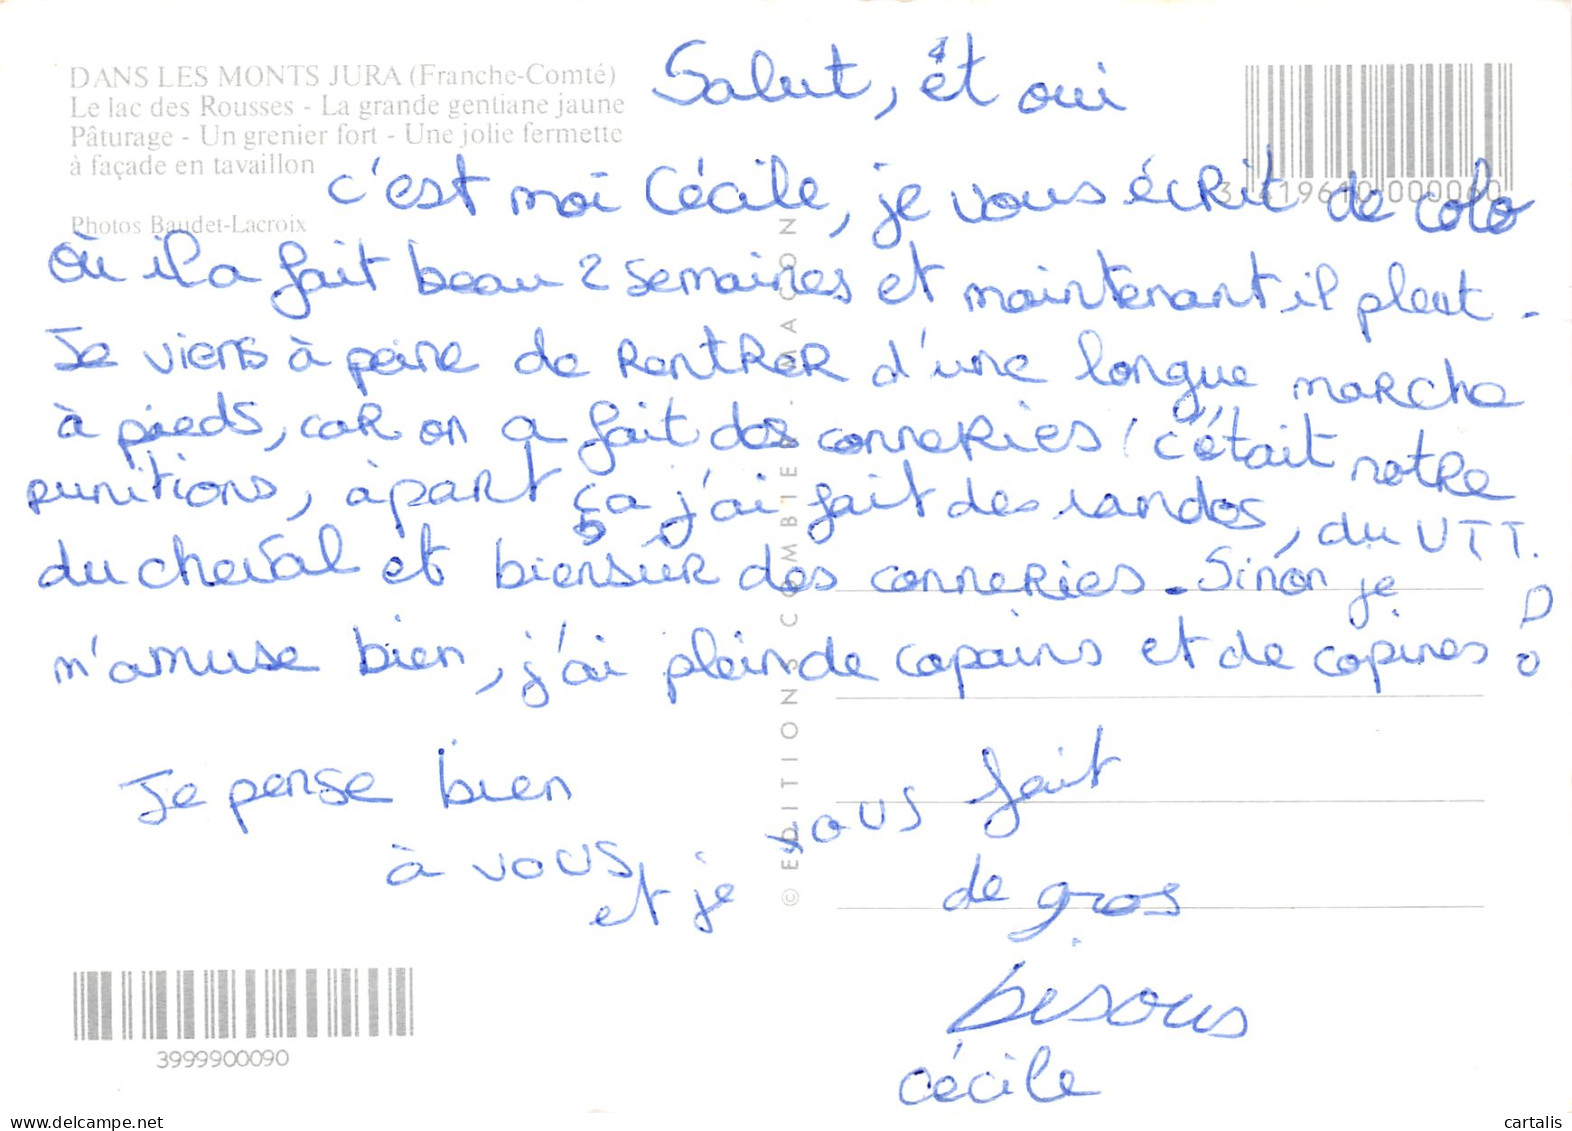 DANS LES MONTS JURA (Franche-Comté)
Le lac des Rousses - La grande gentiane jaune
Pâturage - Un grenier fort - Une jolie fermette
à façade en tavaillon
Photos Baudet-Lacroix
Salut, et oui
c'est moi Cécile, je vous écrit de colo
Où il a fait beau 2 semaines et maintenant il pleut.
Je viens à peine de rentrer d'une longue marche
à pieds, car on a fait des conneries ! c'était notre
punitions, àpart ça j'ai fait des randos, du VTT.
du cheval et biensûr des conneries. Sinon je
m'amuse bien, j'ai pleinde copains et de copines !
Je pense bien
à vous,
et je vous fait
de gros
bisous
Cécile
© EDITIONS COMBIER MACON
3999900090
cartalis